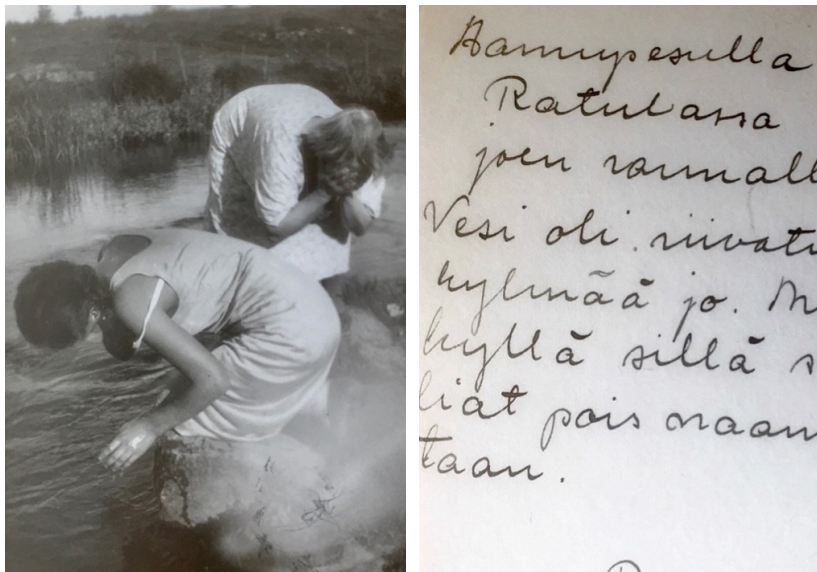 Aamupesulla
Ratulassa
joen rannall
Vesi oli riivatu
kylmää jo. M
kyllä sillä s
liat pois naam
taan.